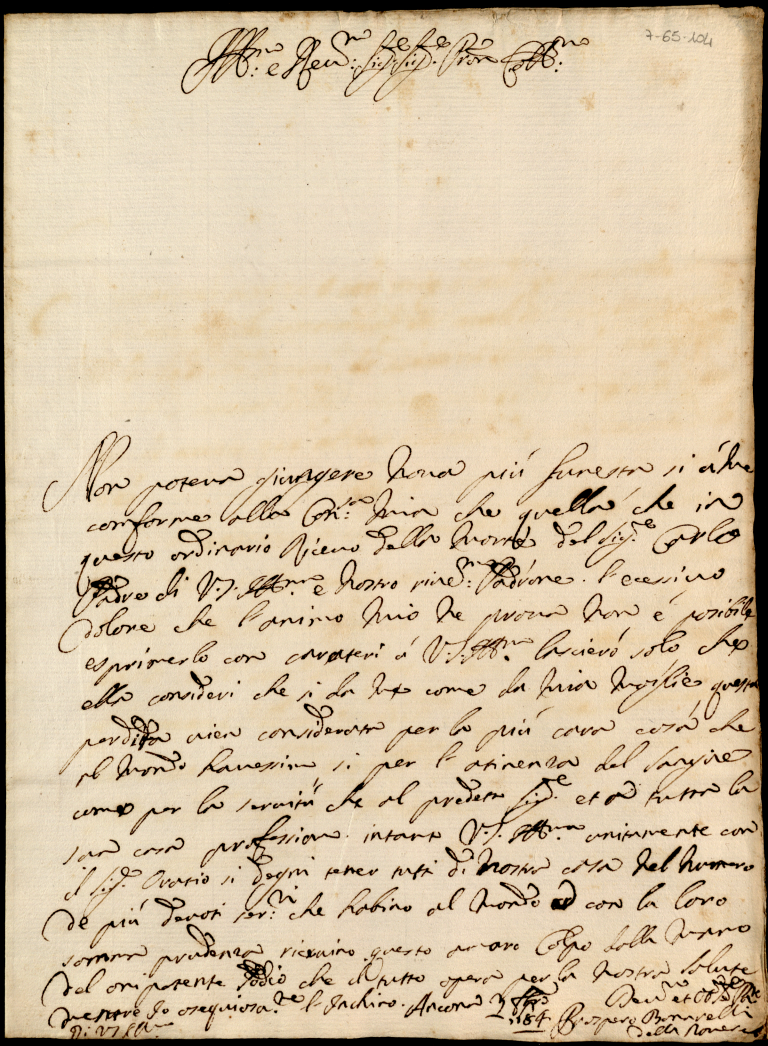 7-65-104
Ill.mo e Rev.mo Sig.re Sig.re P.ron Coll.mo
Non poteva giungere nova più funesta si à me
conforme alla Con.sa mia che quella che in
questo ordinario Ricevo della Morte del Sig.re Carlo
Padre di V.S. Ill.ma e nostro rive.mo Padrone. l'ecessivo
dolore che l'animo mio ne prova non é posibile
esprimerlo con carateri á V.S. Ill.ma lascieró solo che
ella consideri che si da me come da mia moglie questa
perdita vien considerata per la piú cara cosa che
al mondo havessimo si per l'atinenza del sangue
come per la servitú che al predetto Sig.re et a tutta la
sua casa professiamo. intanto V.S. Ill.ma unitamente con
il Sig.r Oratio si degni tener tutti di nostra casa nel numero
de piú devoti ser.ri che habino al mondo con la loro
somma prudenza ricevino questo amaro Colpo dalla mano
del onipotente Iddio che il tutto opera per la nostra salute
mentre Io osequiosa.te l'Inchino. Ancona 2
Di V.S. Ill.ma
Dev.mo et Ob.
Prospero Bonarelli
della Rovere